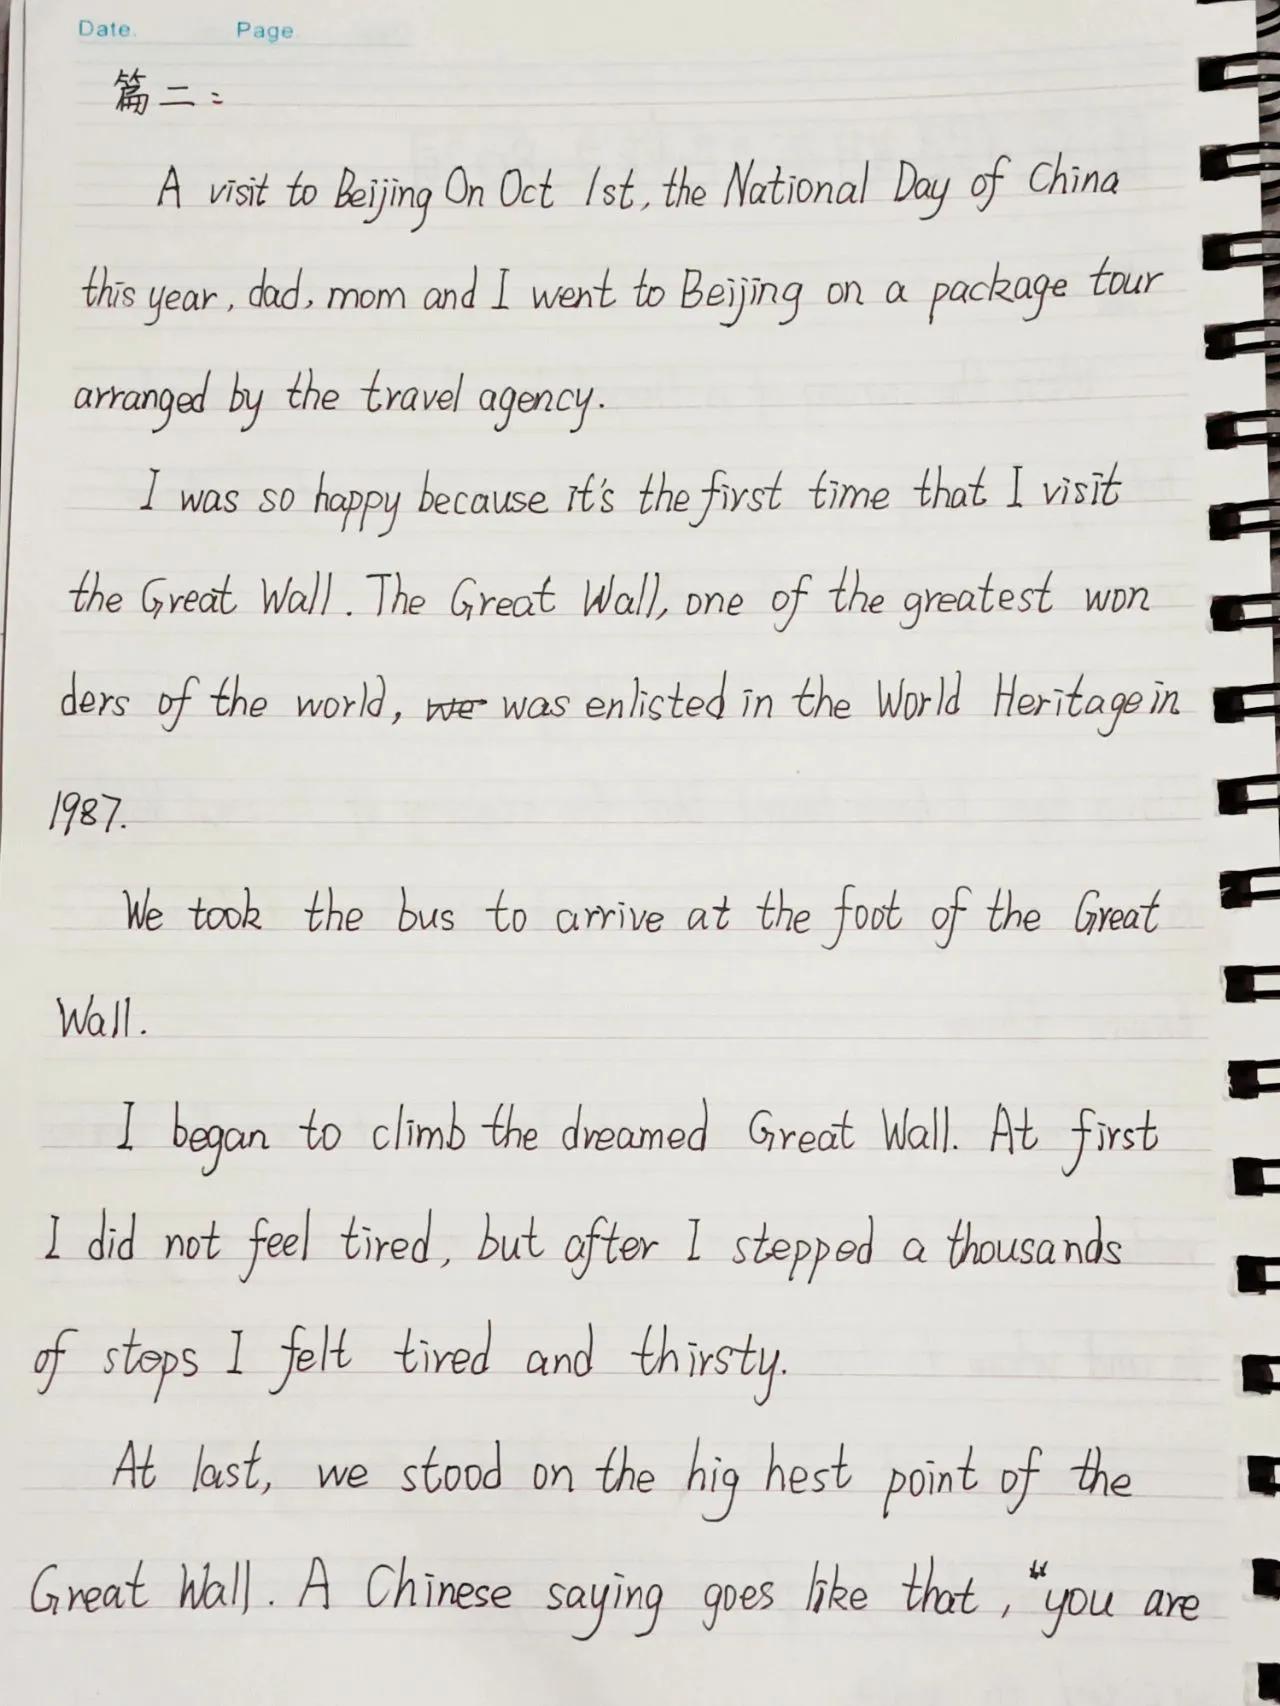 Date. Page
篇二:
A visit to Beijing On Oct 1st, the National Day of China
this year, dad, mom and I went to Beijing on a package tour
arranged by the travel agency.
I was so happy because it's the first time that I visit
the Great Wall. The Great Wall, one of the greatest won
ders of the world, we was enlisted in the World Heritage in
1987.
We took the bus to arrive at the foot of the Great
Wall.
I began to climb the dreamed Great Wall. At first
I did not feel tired, but after I stepped a thousands
of steps I felt tired and thirsty.
At last, we stood on the hig hest point of the
Great Wall. A Chinese saying goes like that, "you are